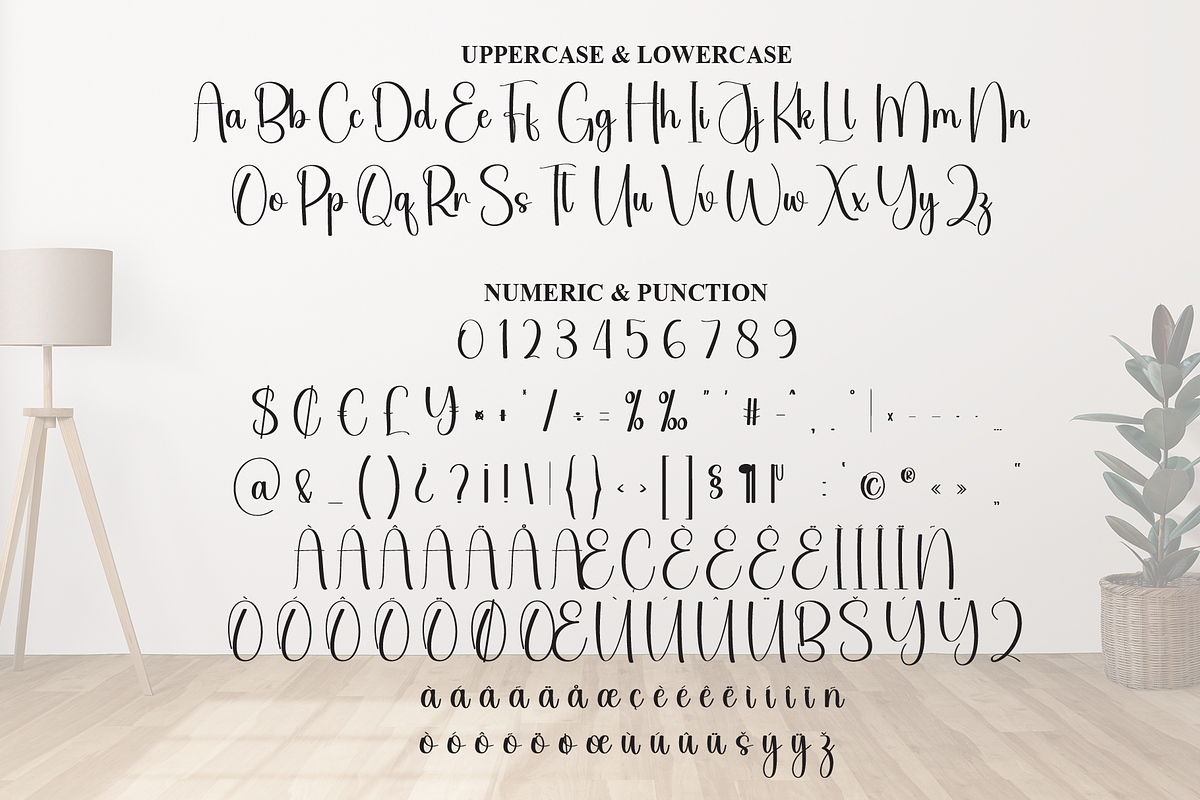 UPPERCASE & LOWERCASE
Aa Bb Cc Dd Ee Ff Gg Hh Ii Jj Kk Ll Mm Nn
Oo Pp Qq Rr Ss Tt Uu Vv Ww Xx Yy Zz
NUMERIC & PUNCTION
0 1 2 3 4 5 6 7 8 9
$ ₵ € £ ¥ ¤ + * / ÷ = % ‰ " ' # - ^ , . ° | × – — · · …
@ & _ ( ) ¿ ? ¡ ! \ | { } ‹ › [ ] § ¶ µ : ‘ © ® « » „ “
À Á Â Ã Ä Å Æ Ç È É Ê Ë Ì Í Î Ï Ñ
Ò Ó Ô Õ Ö Ø Œ Ù Ú Û Ü ß Š Ý Ÿ Ž
à á â ã ä å æ ç è é ê ë ì í î ï ñ
ò ó ô õ ö ø œ ù ú û ü š ý ÿ ž